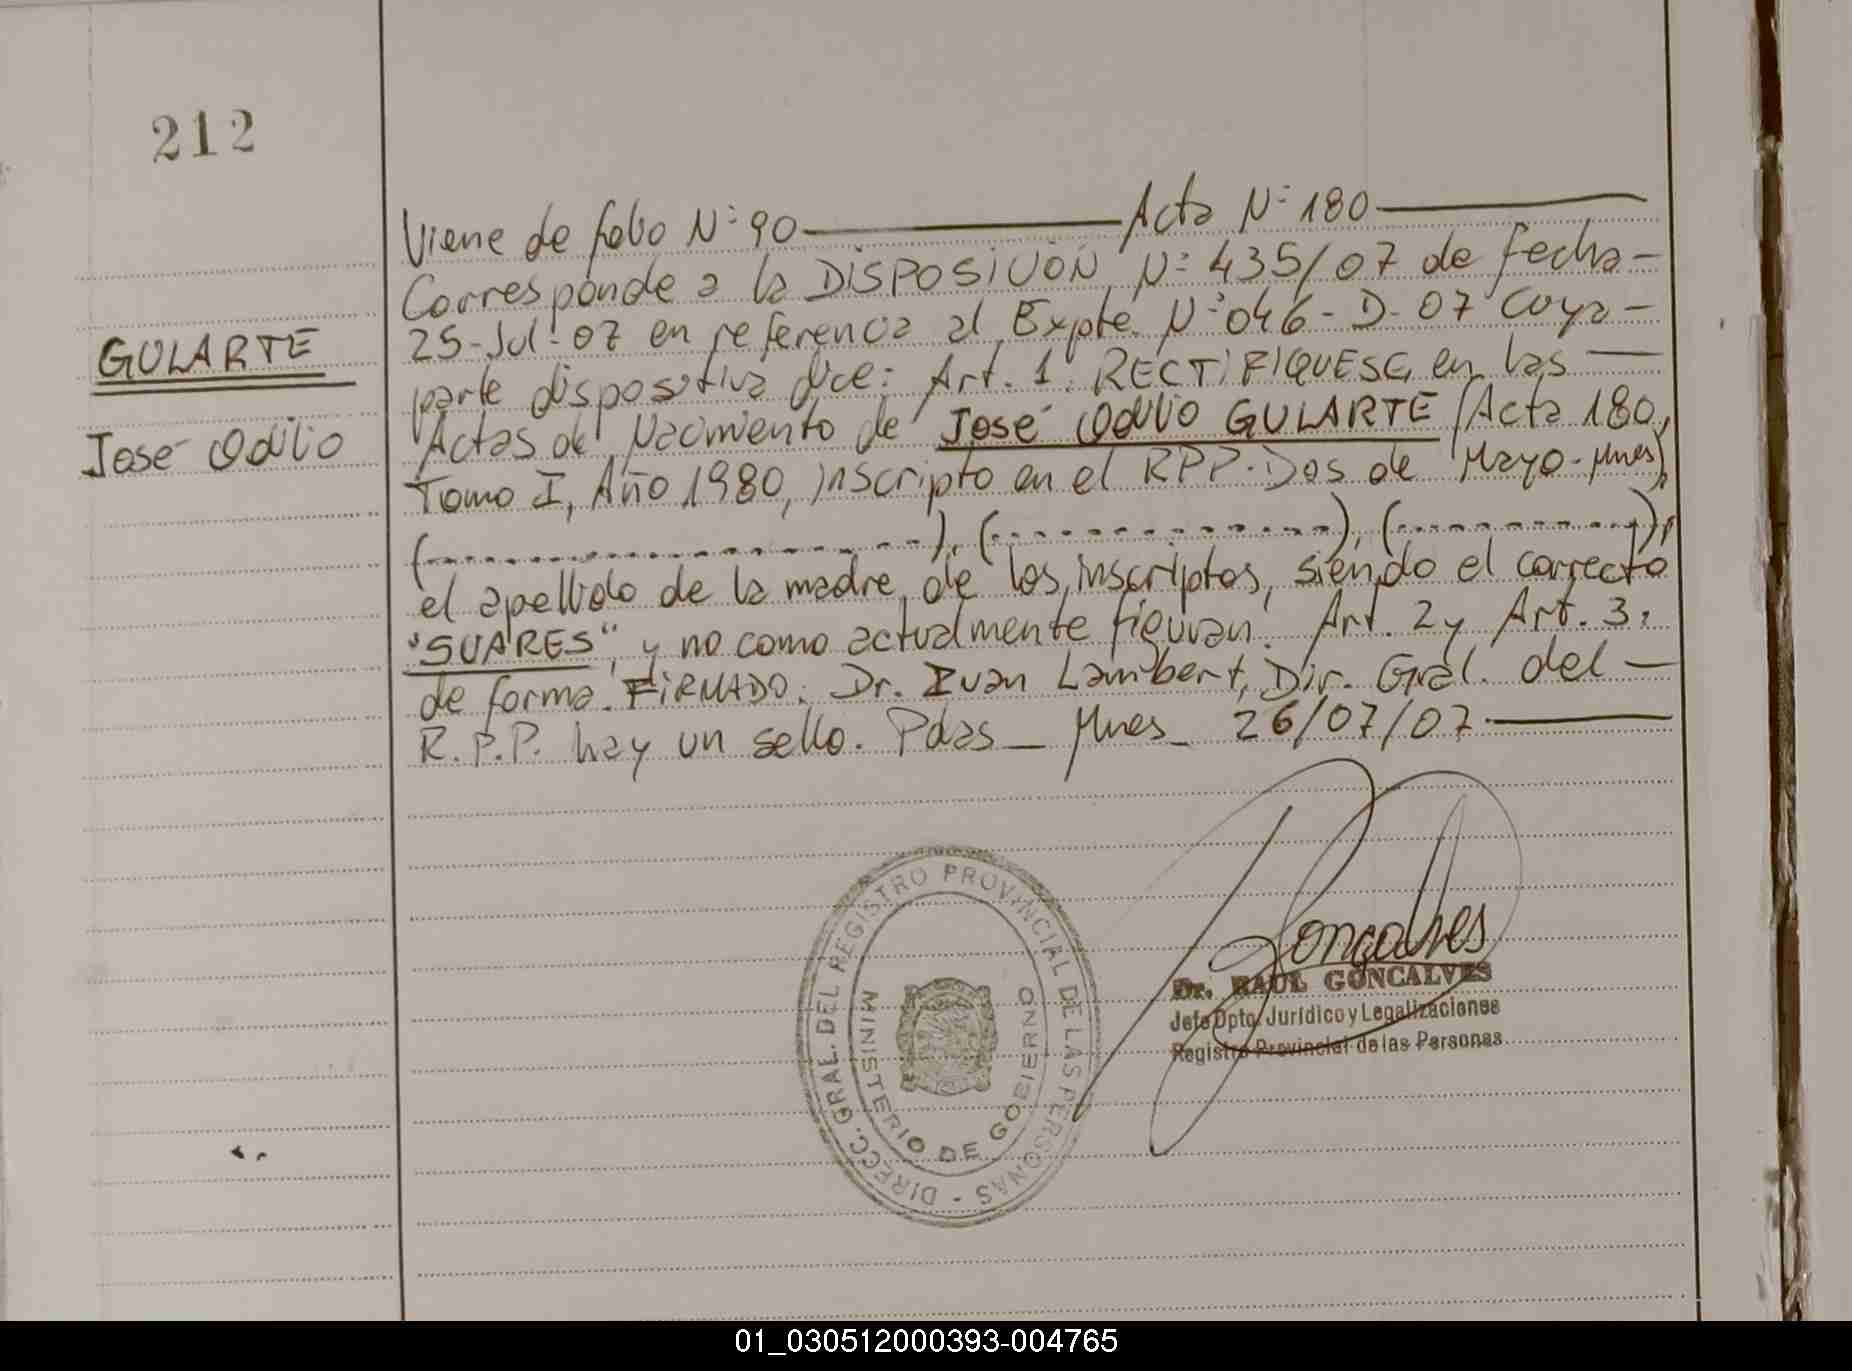 212
GULARTE
José Odilio
Viene de folio N° 90 Acta N° 180
Corresponde a la DISPOSICIÓN N° 435/07 de fecha
25-Jul-07 en referencia al Expte. N° 046-D-07 cuya
parte dispositiva dice: Art. 1: RECTIFIQUESE en las
Actas de Nacimiento de José Odilio GULARTE (Acta 180,
Tomo I, Año 1980, inscripto en el RPP. Dos de Mayo-Mnes),
(-------------------), (--------------), (-----------),
el apellido de la madre de los inscriptos, siendo el correcto
"SUARES", y no como actualmente figuran. Art. 2 y Art. 3:
de forma. FIRMADO: Dr. Ivan Lambert, Dir. Gral. del
R.P.P. hay un sello. Pdas - Mnes - 26/07/07
DIRECC. GRAL. DEL REGISTRO PROVINCIAL DE LAS PERSONAS -
MINISTERIO DE GOBIERNO
Goncalves
Dr. RAUL GONCALVES
Jefe Dpto. Jurídico y Legalizaciones
Registro Provincial de las Personas
01_030512000393-004765